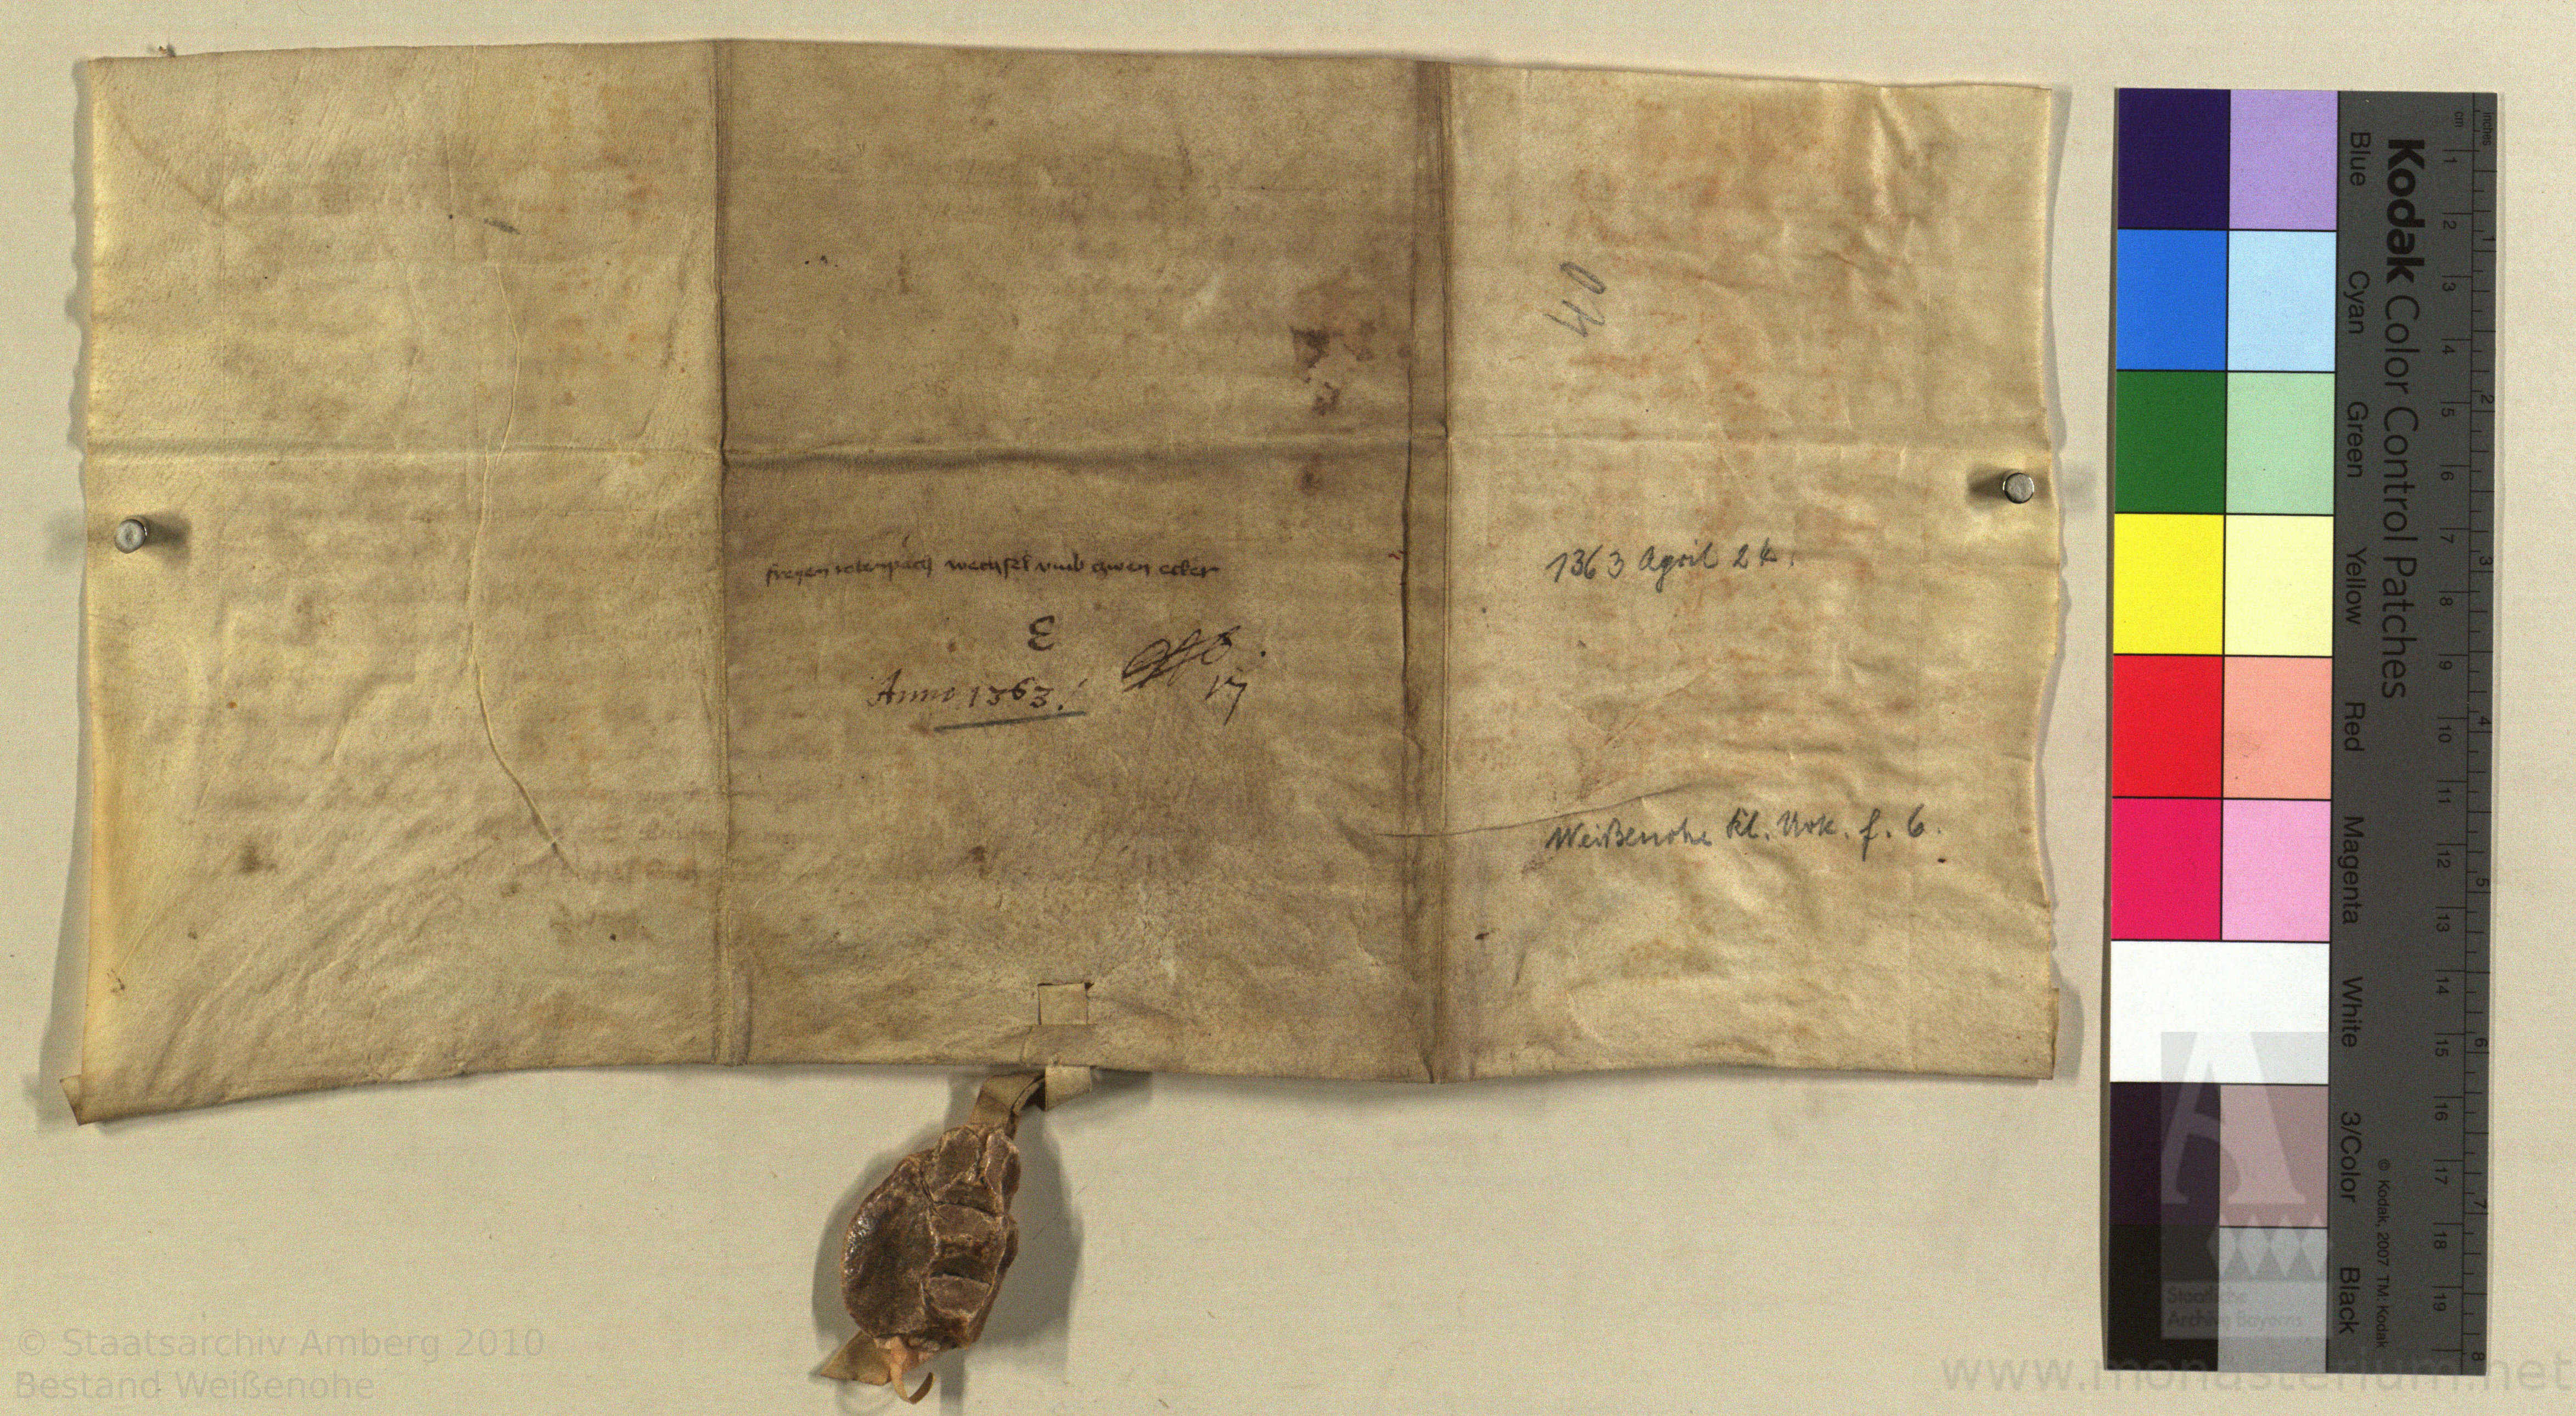 40
freyen rotenpach wechsel vmb czwen ecker
E
Anno 1363.
17
1363 April 24.
Weißenohe Kl. Urk. f. 6.
Kodak Color Control Patches
Blue Cyan Green Yellow Red Magenta White 3/Color Black
© Kodak, 2007 TM: Kodak
inches 1 2 3 4 5 6 7 8
cm 1 2 3 4 5 6 7 8 9 10 11 12 13 14 15 16 17 18 19
Staatliche
Archive Bayerns
© Staatsarchiv Amberg 2010
Bestand Weißenohe
www.monasterium.net